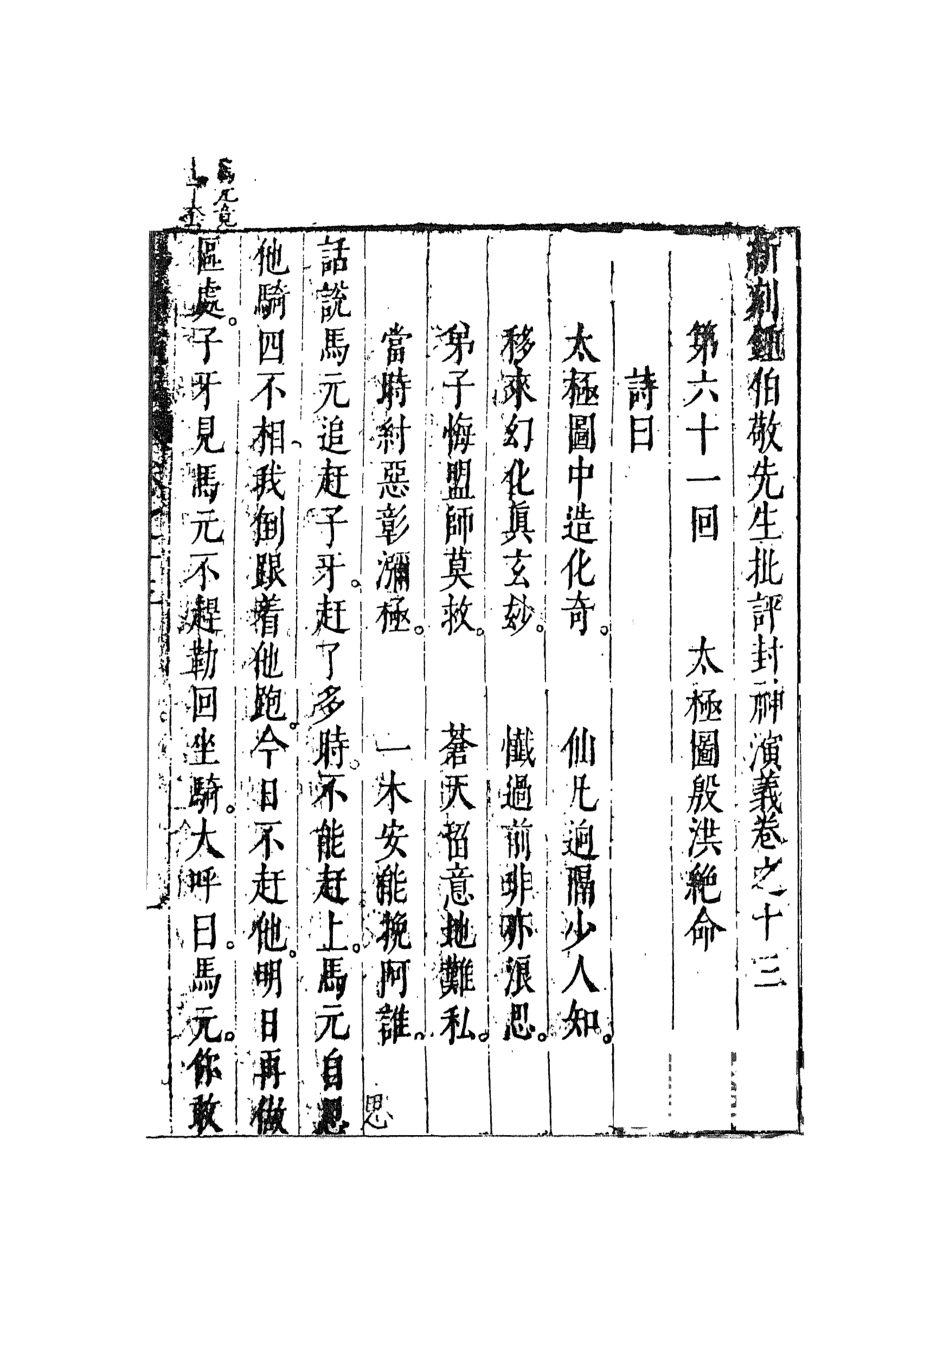 新刻鍾伯敬先生批評封神演義卷之十三
第六十一回　太極圖殷洪絶命
詩曰
太極圖中造化奇。仙凡逈隔少人知。
移來幻化眞玄妙。懺過前非亦浪思。
弟子悔盟師莫救。蒼天留意地難私。
當時紂惡彰瀰極。一木安能挽阿誰。
話說馬元追赶子牙。赶了多時。不能赶上。馬元自思
思
他騎四不相、我倒跟着他跑。今日不赶他。明日再做
區處。子牙見馬元不趕、勒回坐騎。大呼曰。馬元。你敢
馬元竟